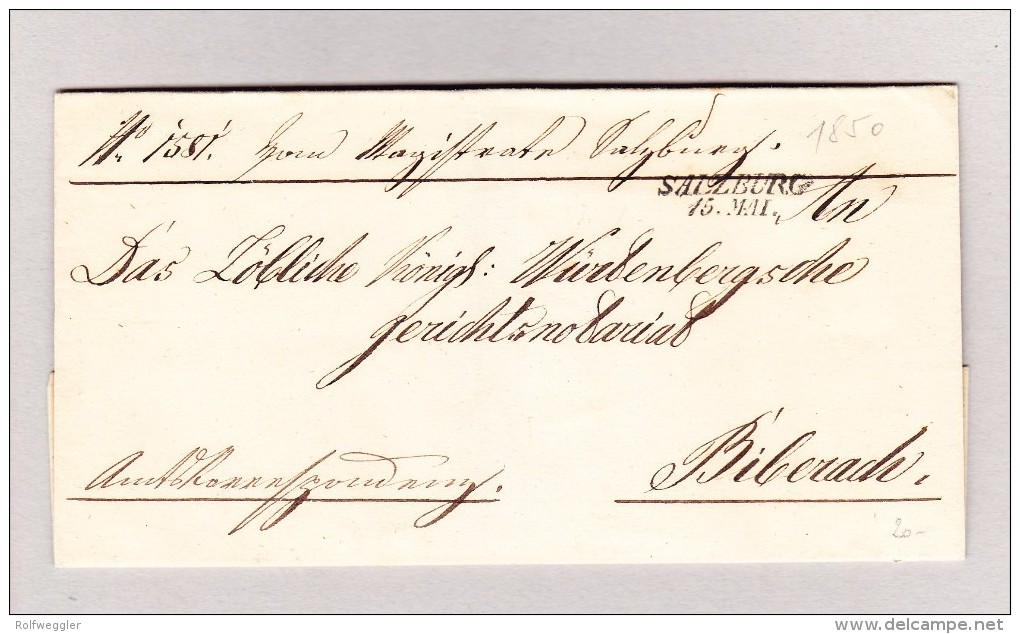 No. 1581. Vom Magistrate Salzburg.
1850
SALZBURG
15. MAI.
An
Das Löbliche Königl: Würdenbergsche
Gerichtsnotariat
Amtskorrespondenz.
Biberach.
20-
Rolfweggler
www.delcampe.net